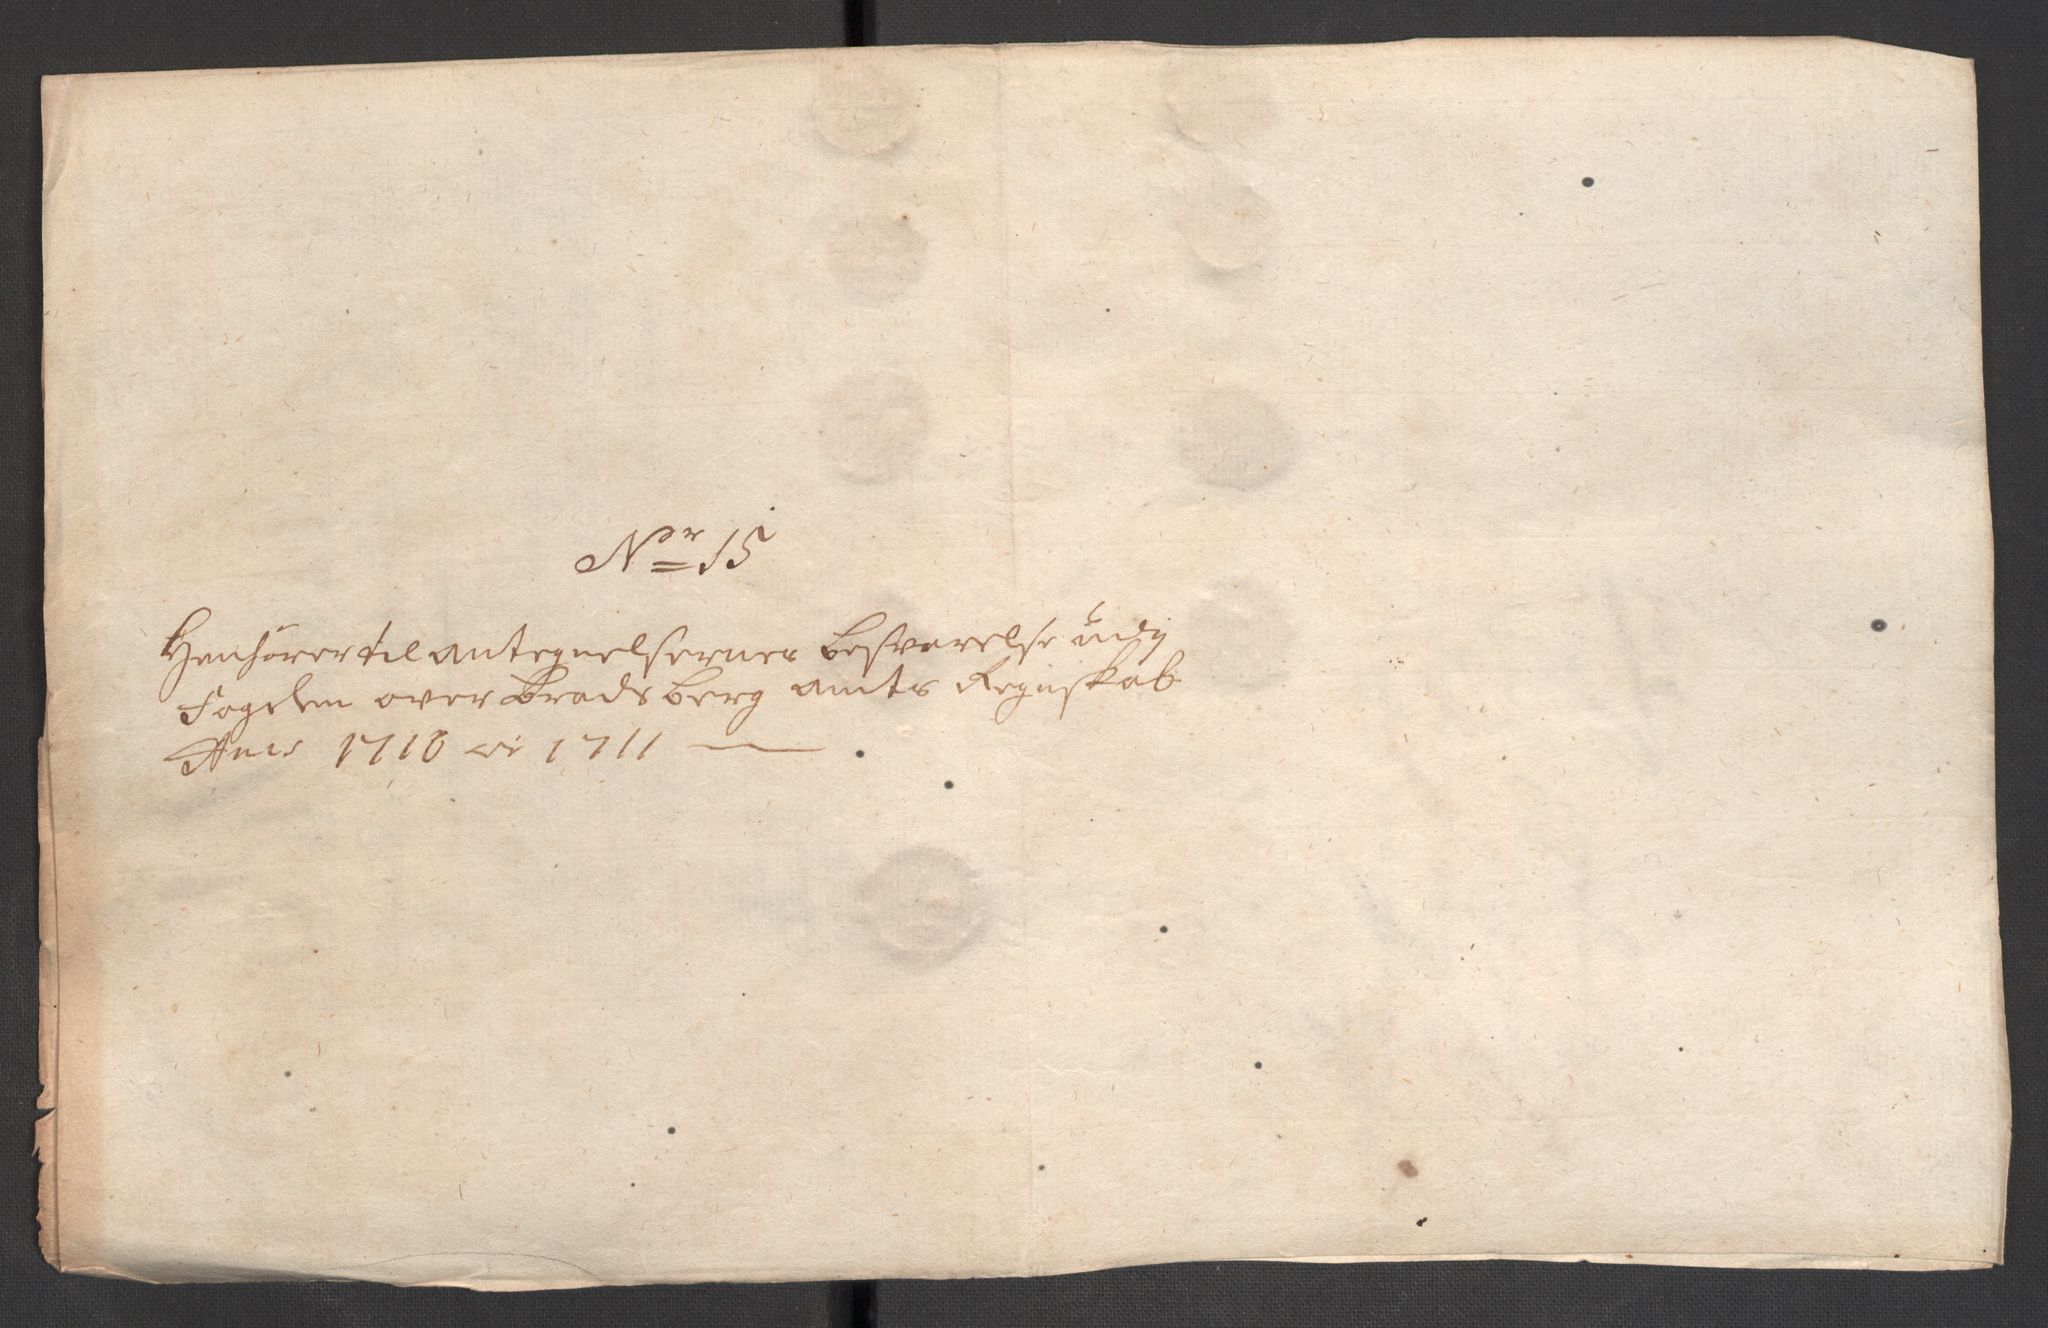 Ner 15
Henhører til antegnelsernes besvarelse udj
Fogden over Bradsberg amts Regnskab
Anno 1710 et 1711